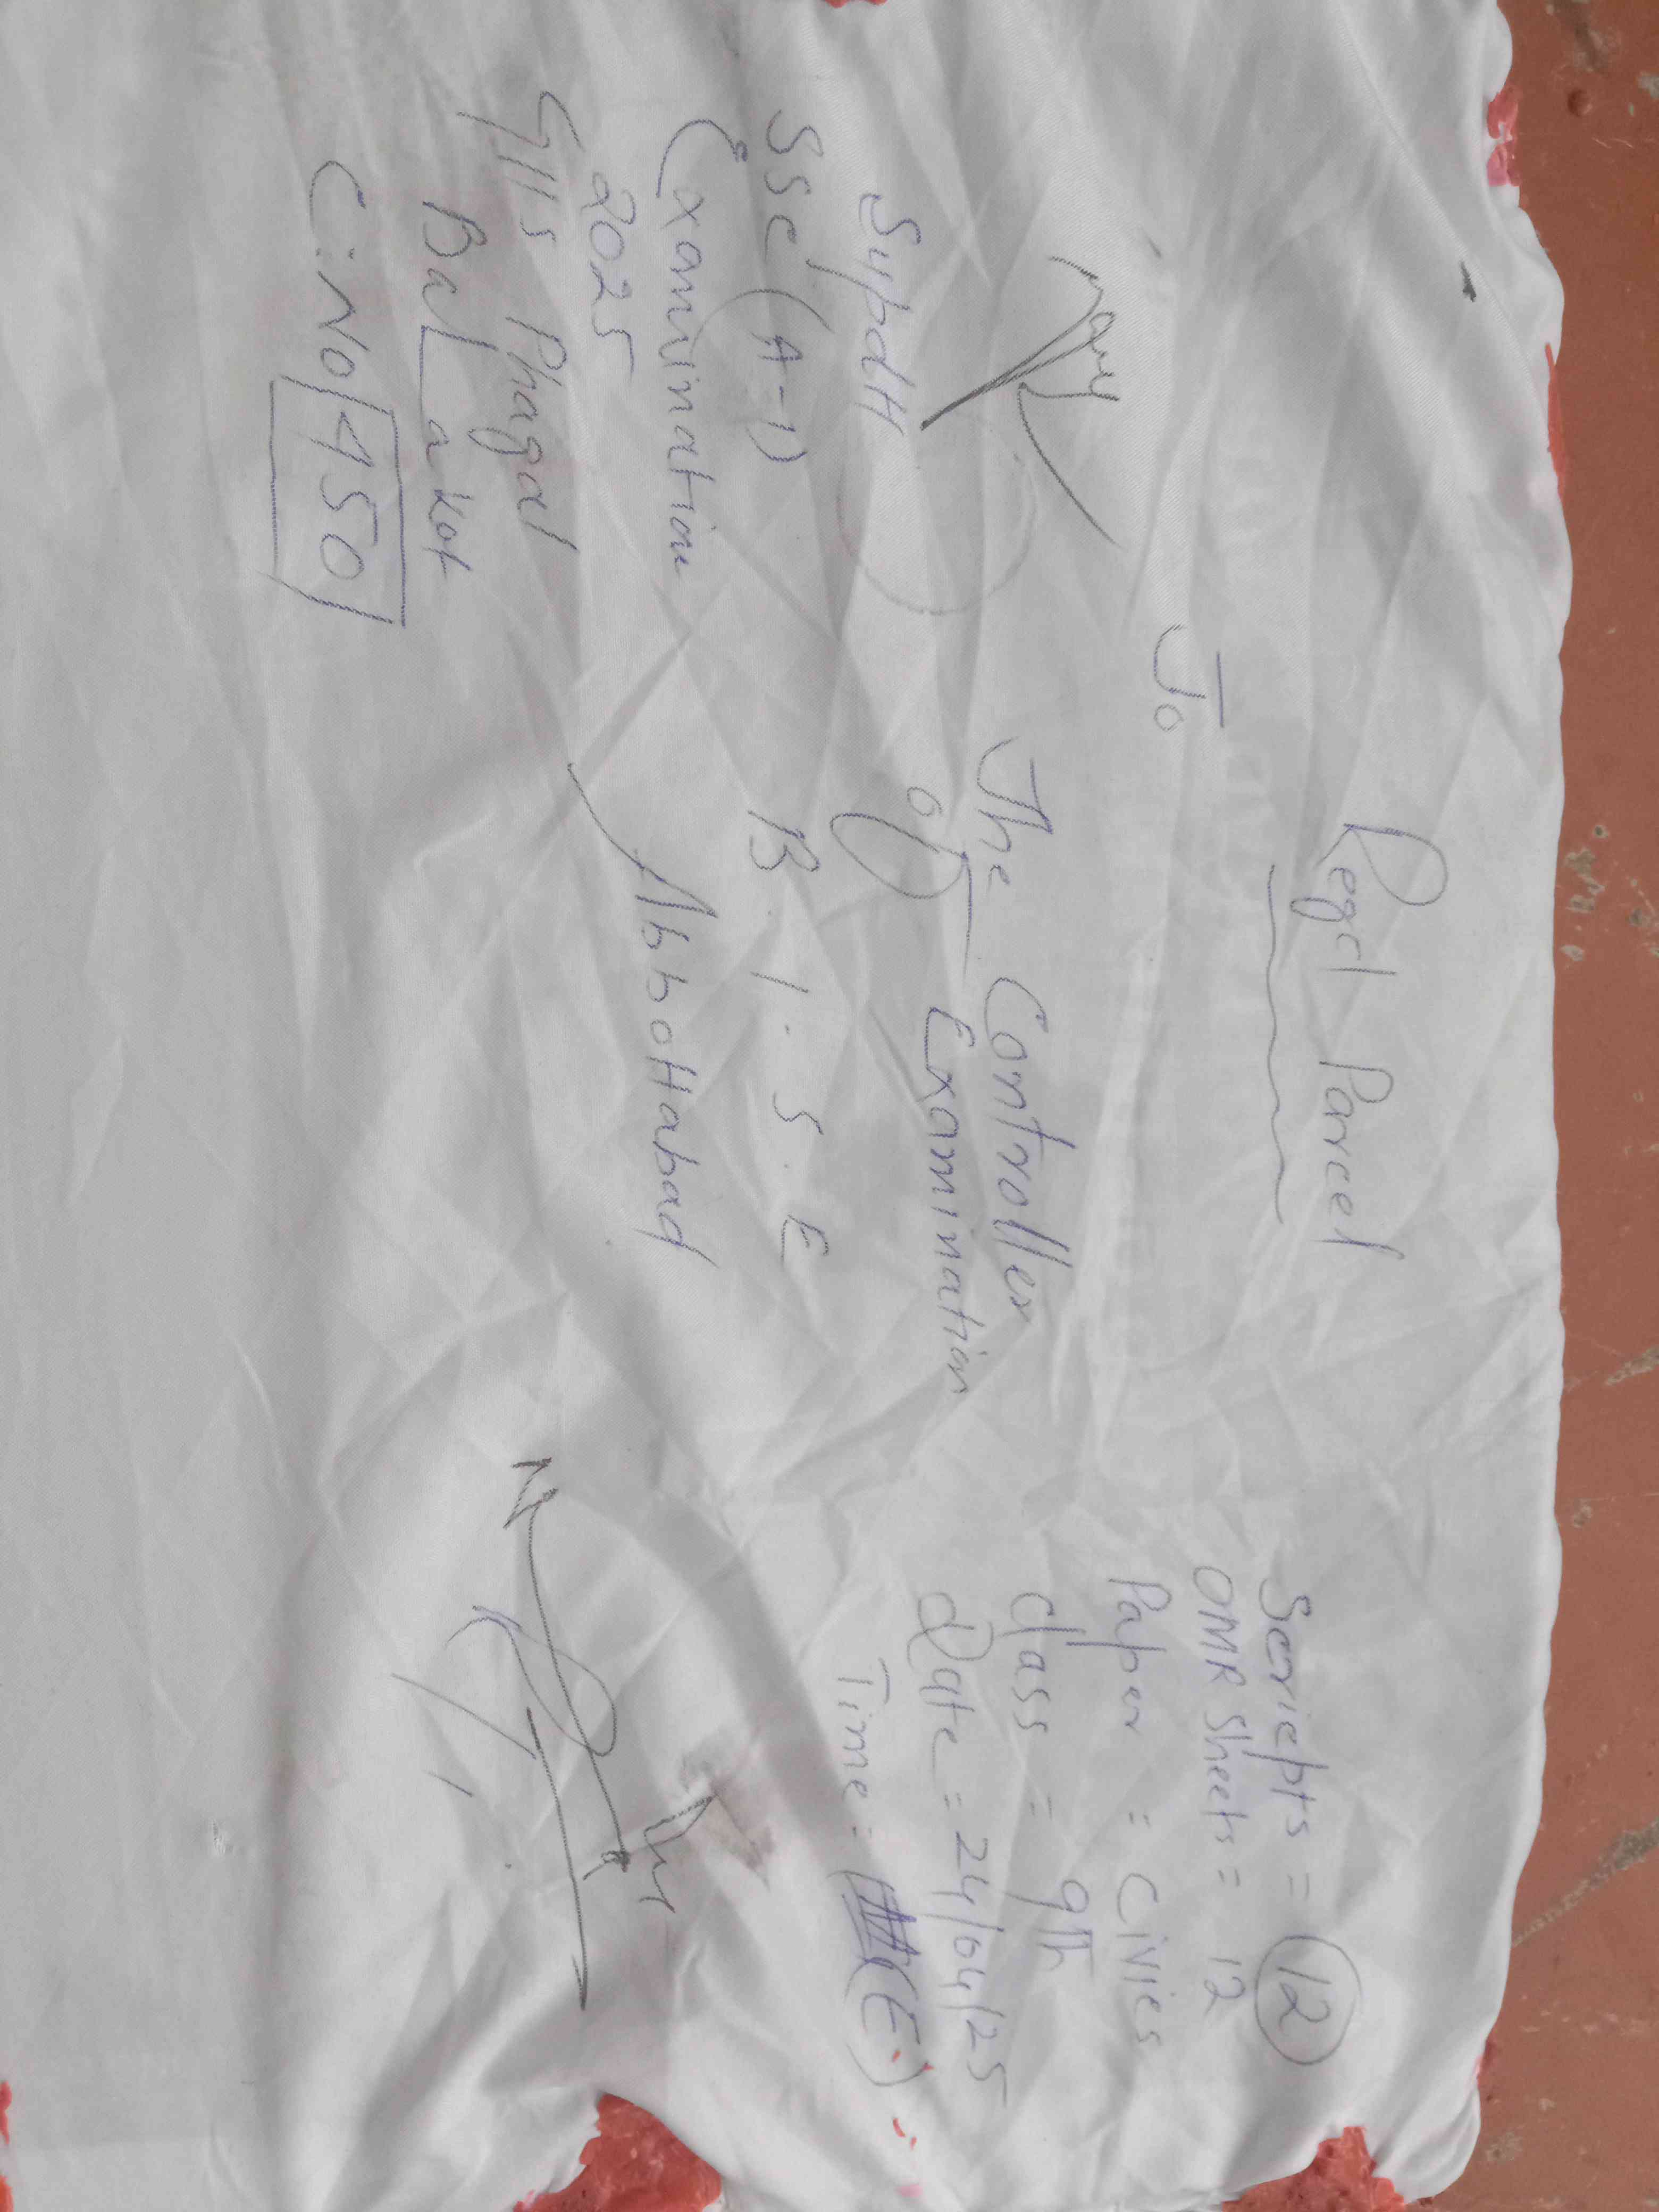 Regd Parcel
To
The Controller
of Examination
B.I.S.E
Abbottabad
Scriepts = 12
OMR Sheets = 12
Paper = Civies
Class = 9th
Date = 24/04/25
Time = (E)
SypdH
SSC (A-1)
Examination
2025
GHS Phagal
Balakot
C.No 450